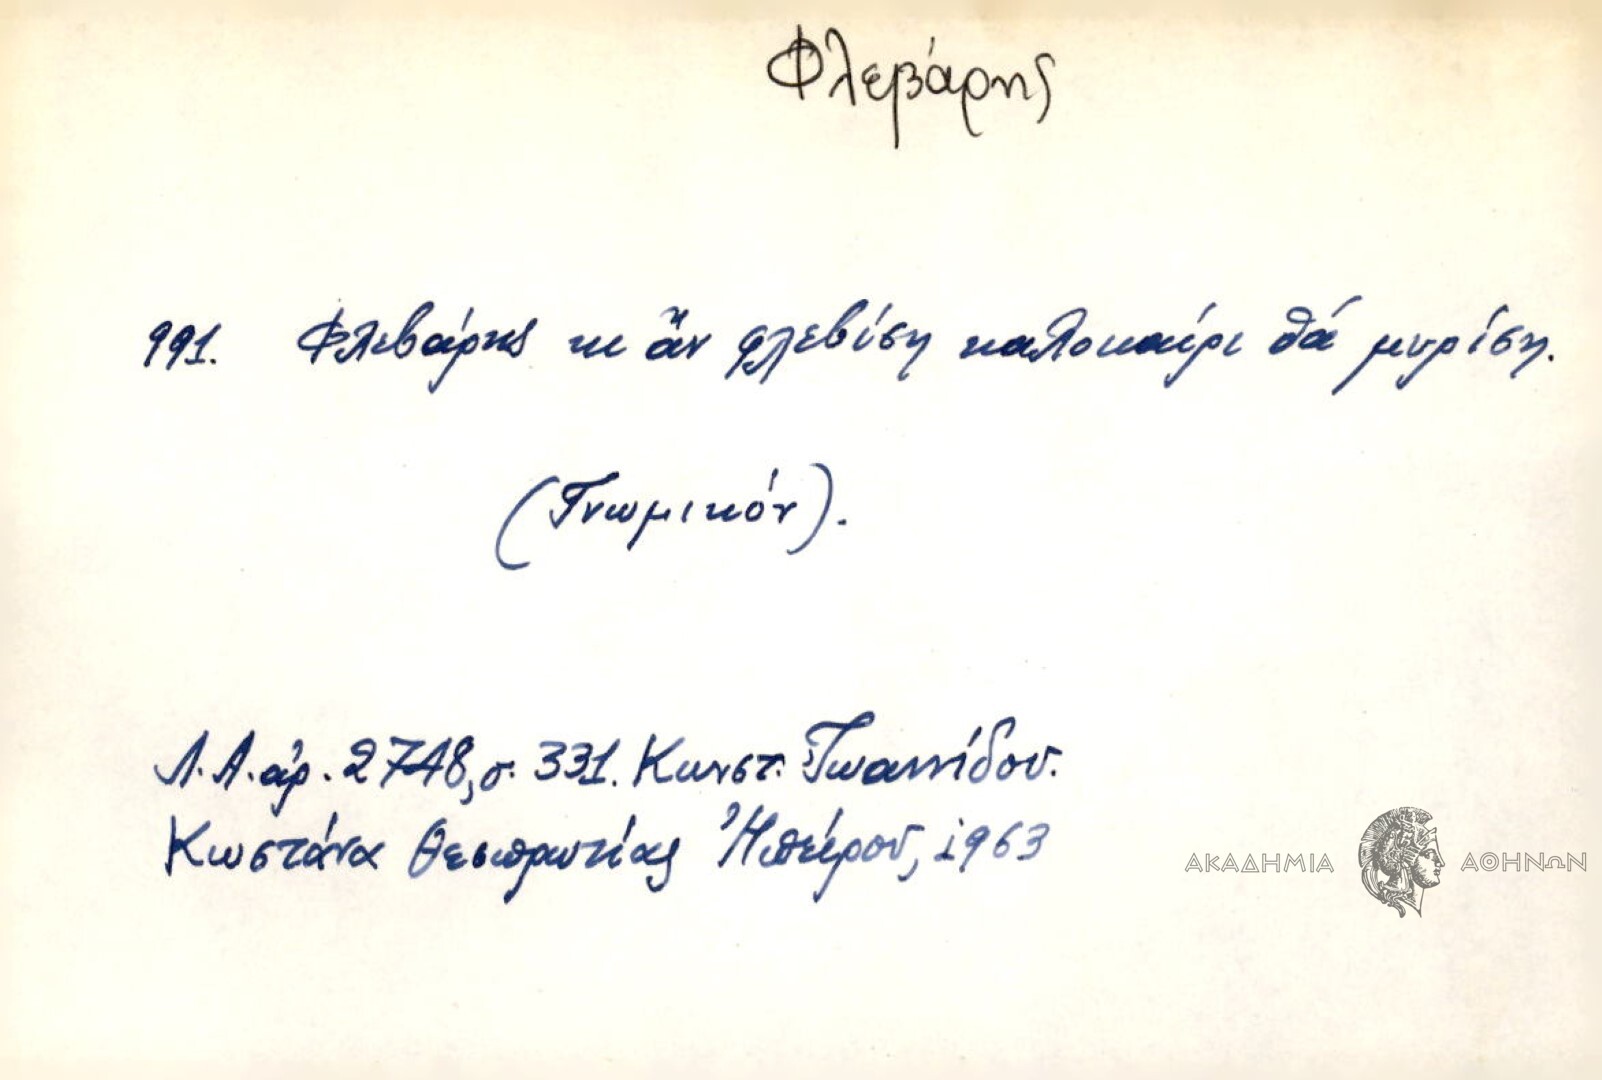 Φλεβάρης
991. Φλεβάρης κι ἄν φλεβίση καλοκαίρι θά μυρίση.
(Γνωμικόν).
Λ.Α. ἀρ. 2748, σ. 331. Κωνστ. Ἰωαννίδου.
Κωστάνα Θεσπρωτίας Ἠπείρου, 1963
ΑΚΑΔΗΜΙΑ ΑΘΗΝΩΝ